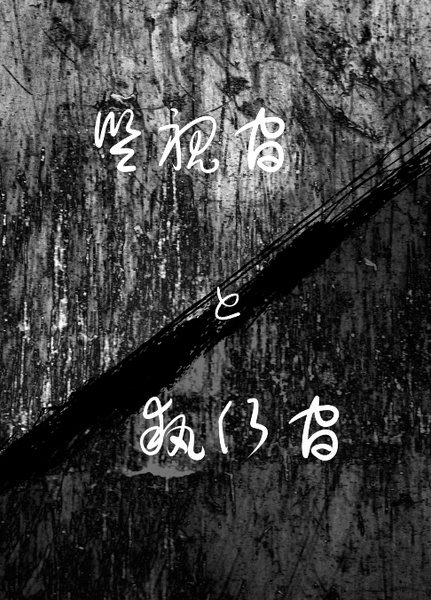 監視官
と
執行官